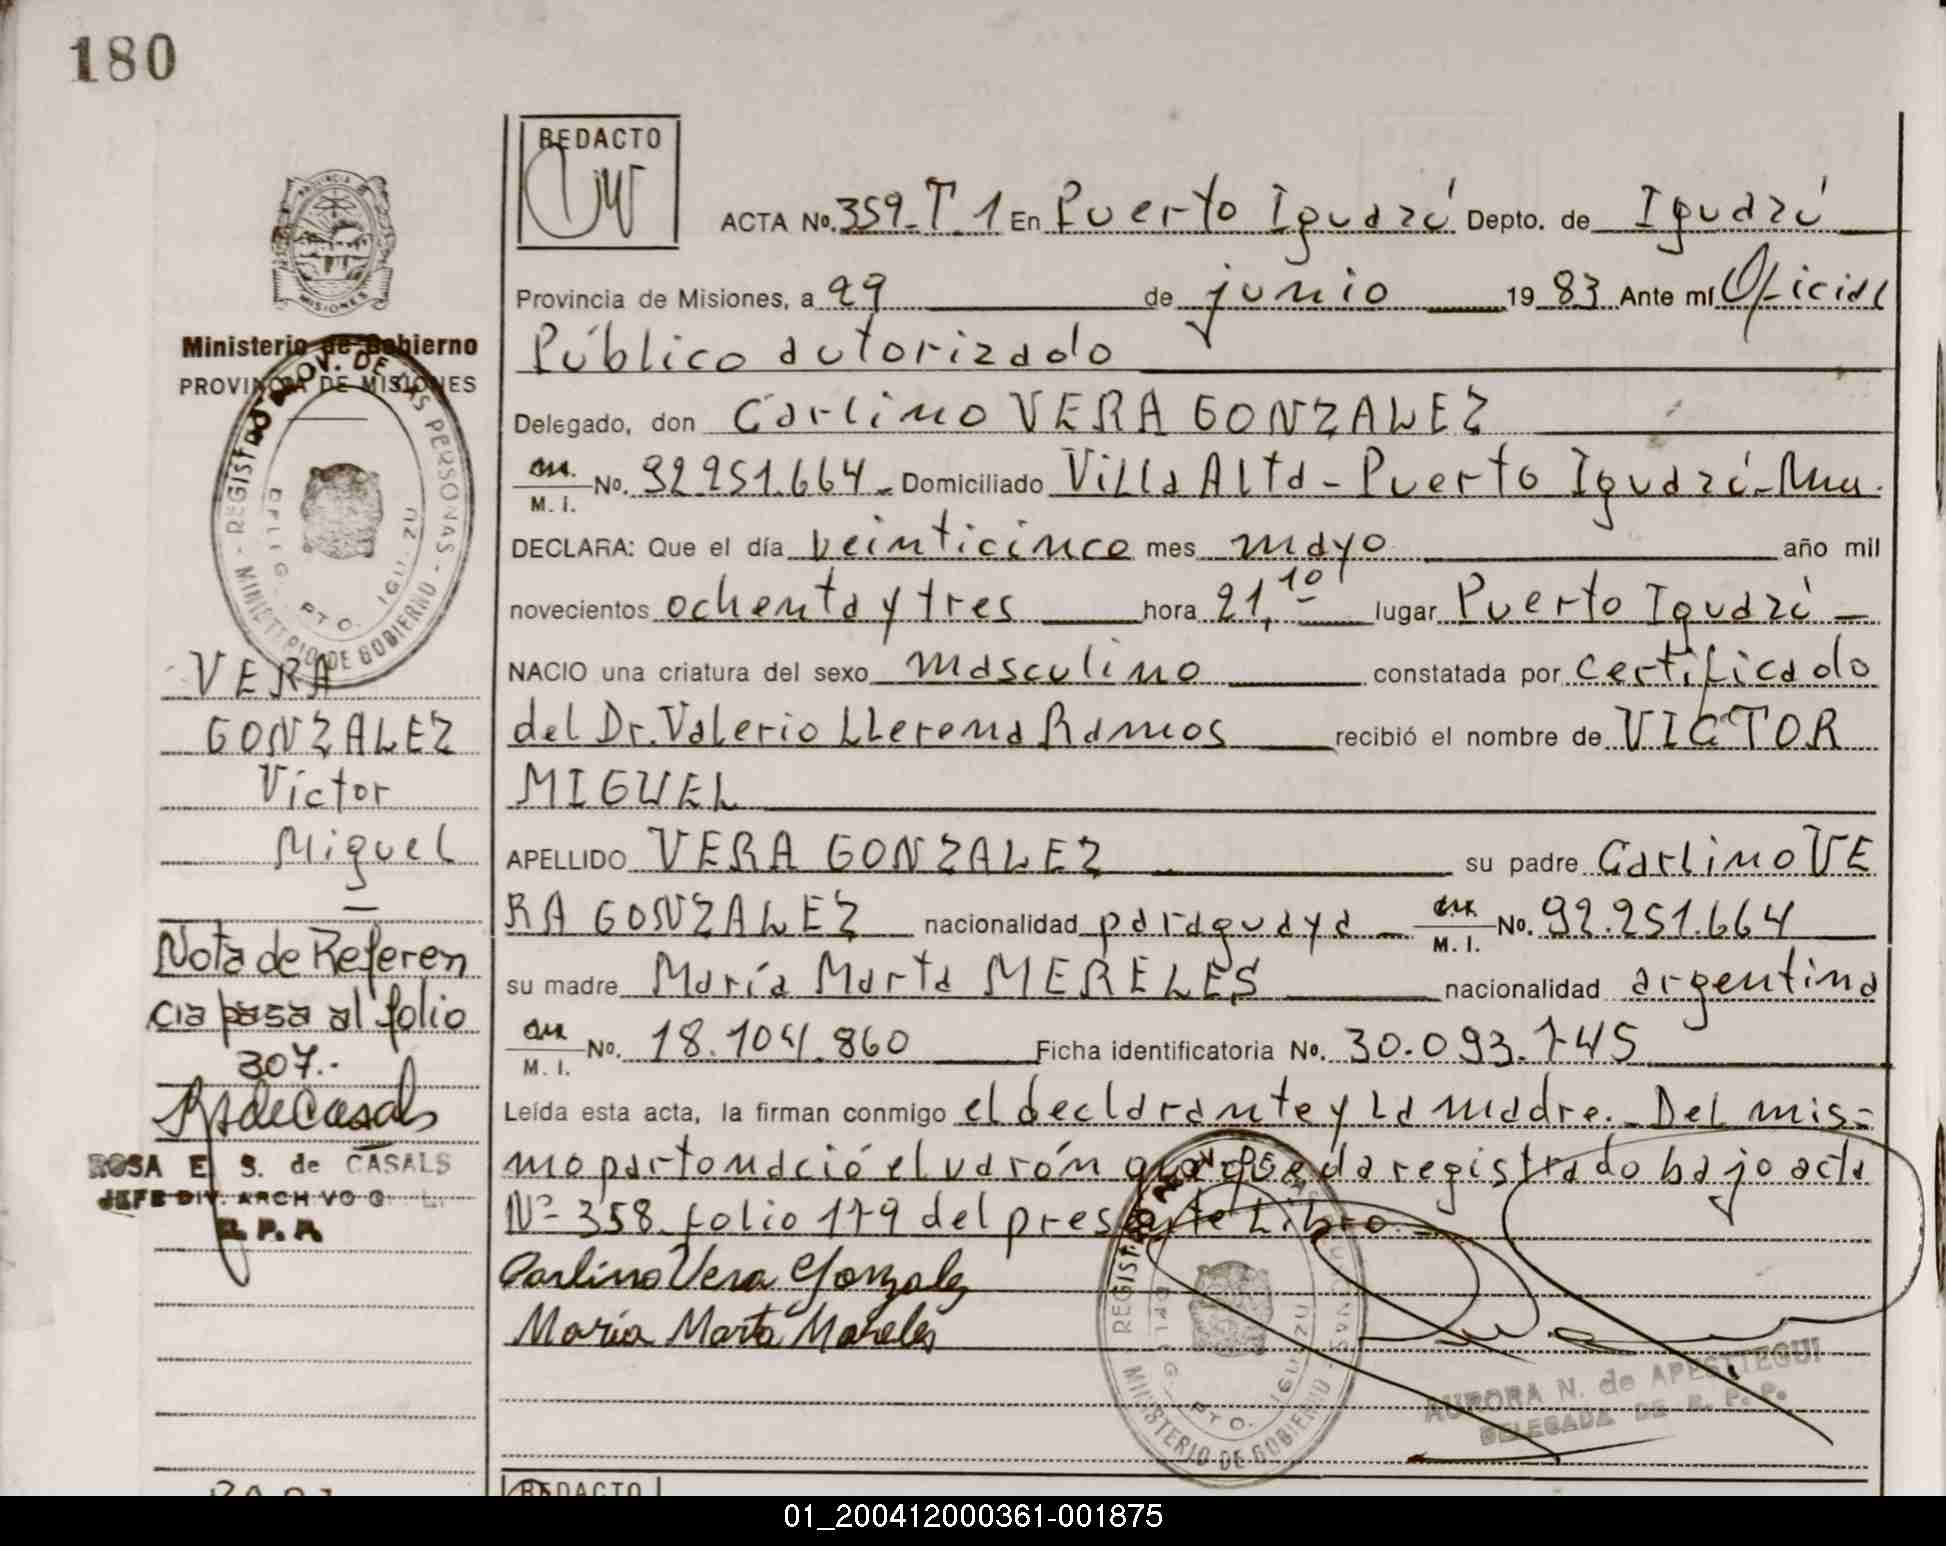 180
REDACTO
ACTA No. 359-T 1 En Puerto Iguazú Depto. de Iguazú
Provincia de Misiones, a 29 de junio 1983 Ante mí Oficial
Público autorizado
Delegado, don Carlino VERA GONZALEZ
M. I. No. 92.251.664 - Domiciliado Villa Alta - Puerto Iguazú - Mnes.
DECLARA: Que el día veinticinco mes mayo año mil
novecientos ochenta y tres hora 21,10 lugar Puerto Iguazú -
NACIO una criatura del sexo masculino constatada por certificado
del Dr. Valerio LLerena Ramos recibió el nombre de VICTOR
MIGUEL
APELLIDO VERA GONZALEZ su padre Carlino VE
RA GONZALEZ nacionalidad paraguaya - M. I. No. 92.251.664
su madre María Marta MERELES nacionalidad argentina
M. I. No. 18.104.860 Ficha identificatoria No. 30.093.745
Leída esta acta, la firman conmigo el declarante y la madre. - Del mis-
mo parto nació el varón que queda registrado bajo acta
Nº 358 folio 179 del presente Libro. -
Carlino Vera Gonzalez
María Marta Mereles
AURORA N. de APESTEGUI
DELEGADA DE R. P. P.
PROVINCIA DE MISIONES
Ministerio de Gobierno
PROVINCIA DE MISIONES
REGISTRO PROV. DE LAS PERSONAS - MINISTERIO DE GOBIERNO
DELEG. PTO. IGUAZU
VERA
GONZALEZ
Víctor
Miguel
Nota de Referen
cia pasa al folio
307.-
RS de Casals
ROSA E. S. de CASALS
JEFE DIV. ARCHIVO G
R. P. P.
REGISTRO PROV. DE LAS PERSONAS - MINISTERIO DE GOBIERNO
DELEG. PTO. IGUAZU
REDACTO
01_200412000361-001875